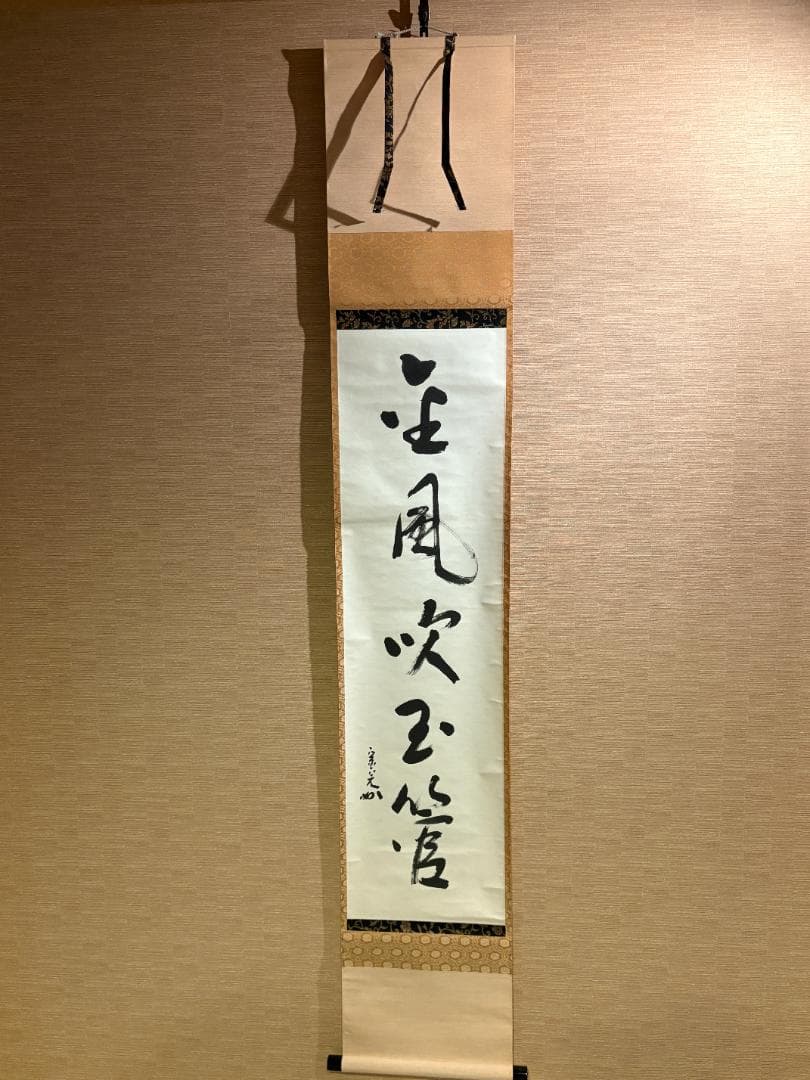 金風吹玉管